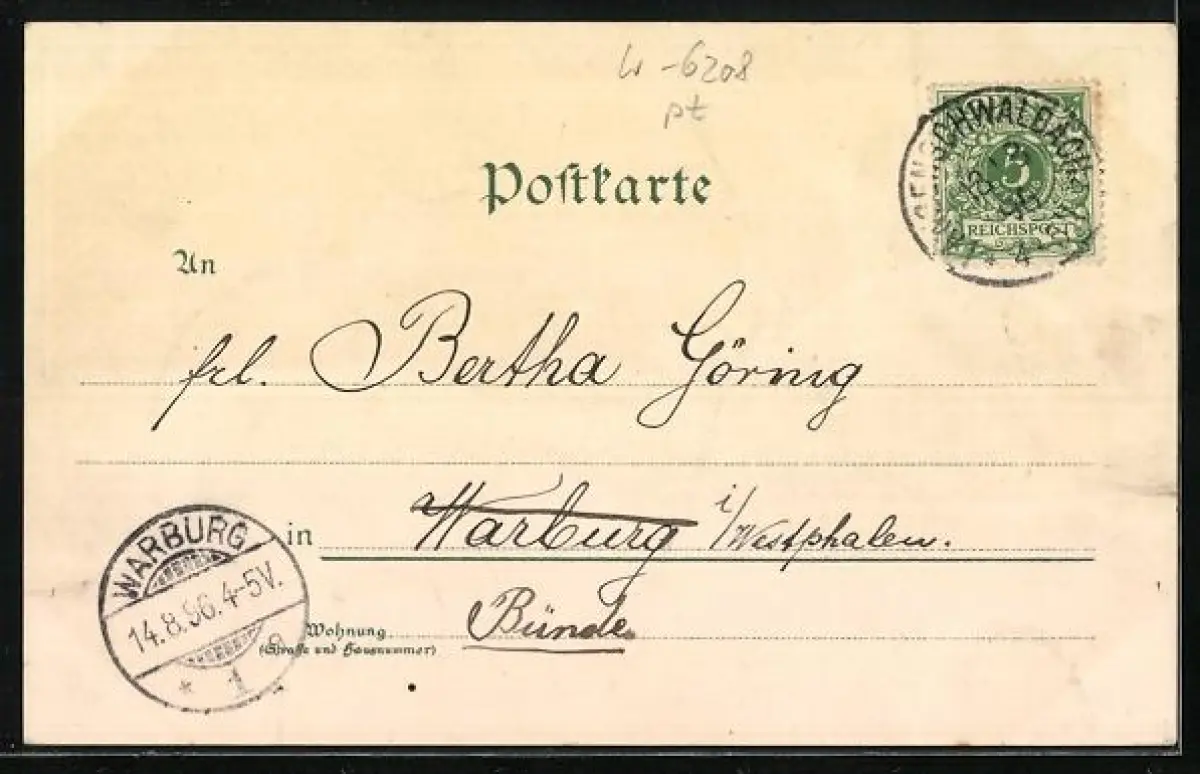 W-6208
pt
Postkarte
5
REICHSPOST
SCHWALBACH
4
An
frl. Bertha Göring
in Warburg i/Westphalen.
Bünde
Wohnung
(Straße und Hausnummer)
WARBURG
14.8.96.4-5V.
* 1